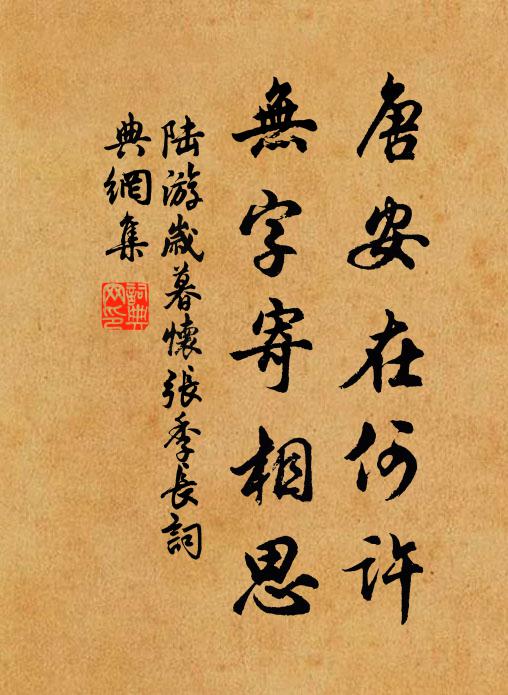 唐安在何許
無字寄相思
陸游歲暮懷張季長詞
典網集
詞典網印